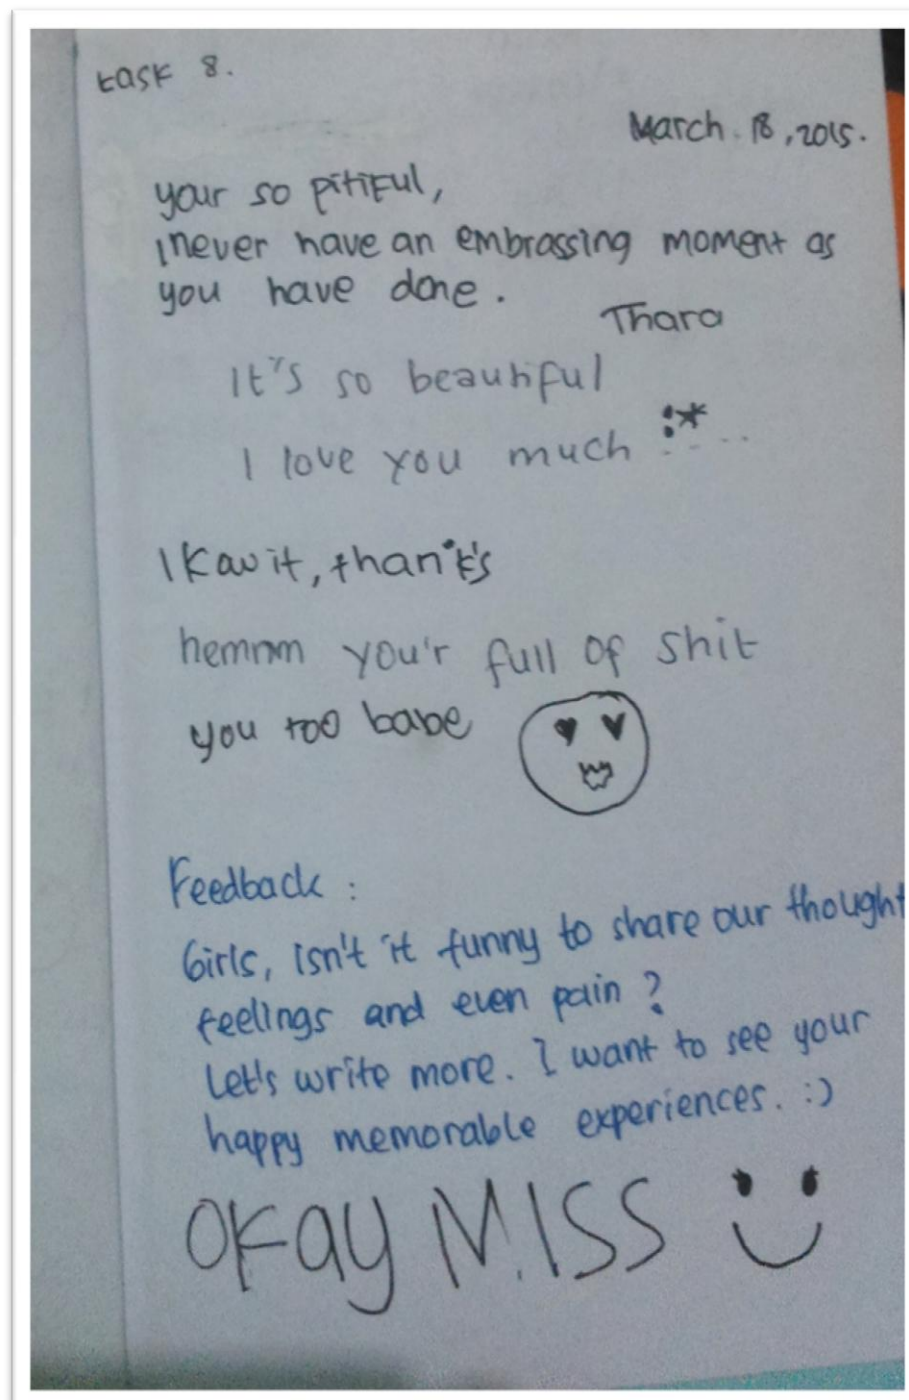 task 8.
March. 18, 2015.
your so pitiful,
I never have an embrassing moment as
you have done.
Thara
It's so beautiful
I love you much :*
I Kaw it, thank's
hemmm you'r full of shit
you too babe
Feedback :
Girls, isn't it funny to share our thought
feelings and even pain ?
Let's write more. I want to see your
happy memorable experiences. :)
Okay MISS